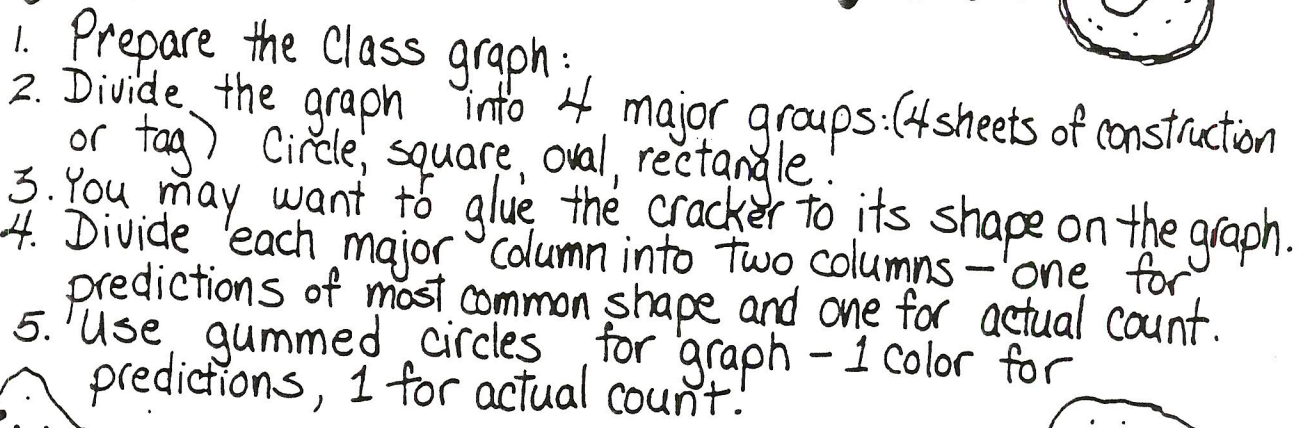 1. Prepare the Class graph:
2. Divide the graph into 4 major groups:(4 sheets of construction
or tag) Circle, square, oval, rectangle.
3. You may want to glue the cracker to its shape on the graph.
4. Divide each major column into two columns - one for
predictions of most common shape and one for actual count.
5. Use gummed circles for graph - 1 color for
predictions, 1 for actual count.